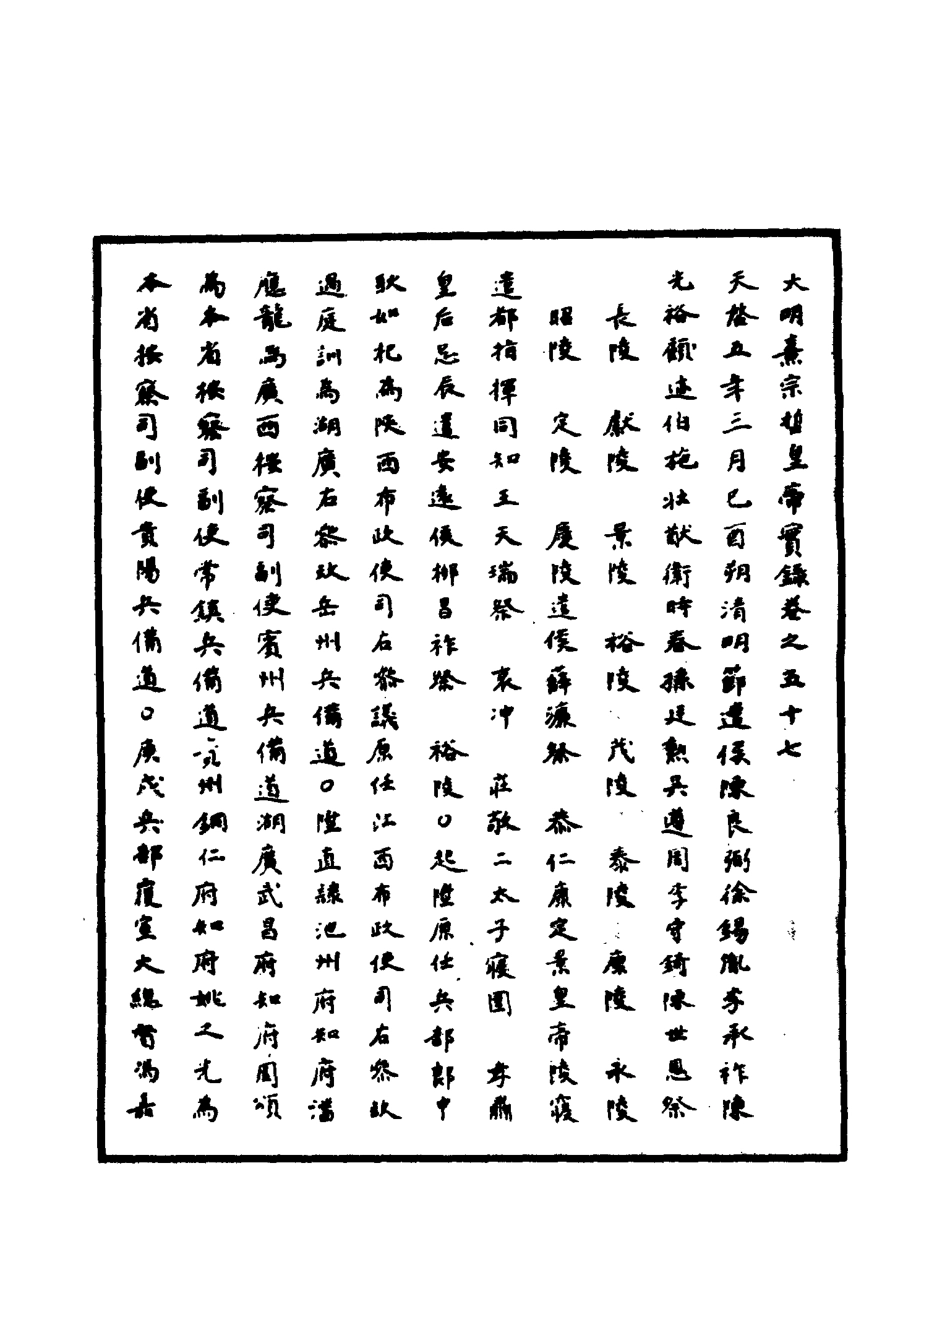 大明熹宗悊皇帝實錄卷之五十七
天啓五年三月己酉朔清明節遣侯陳良弼徐錫胤李承祚陳
光裕顧迹伯施壯猷衛時春孫廷勲吳遵周李守錡陳世恩祭
長陵 獻陵 景陵 裕陵 茂陵 泰陵 康陵 永陵
昭陵 定陵 慶陵遣侯薛濂祭 恭仁康定景皇帝陵寢
遣都指揮同知王天瑞祭 哀冲 莊敬二太子寢園 孝肅
皇后忌辰遣安遠侯柳昌祚祭 裕陵○起陞原任兵部郎中
耿如杞為陝西布政使司右叅議原任江西布政使司右叅政
過庭訓為湖廣右叅政岳州兵備道○陞直隸池州府知府潘
應龍為廣西按察司副使賓州兵備道湖廣武昌府知府周頌
為本省按察司副使常鎮兵備道貴州銅仁府知府姚之光為
本省按察司副使貴陽兵備道○庚戌兵部覆宣大總督馮嘉